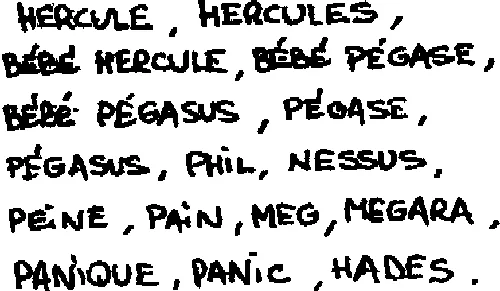 HERCULE, HERCULES,
BÉBÉ HERCULE, BÉBÉ PÉGASE,
BÉBÉ PÉGASUS, PÉGASE,
PÉGASUS, PHIL, NESSUS,
PEINE, PAIN, MEG, MEGARA,
PANIQUE, PANIC, HADES.